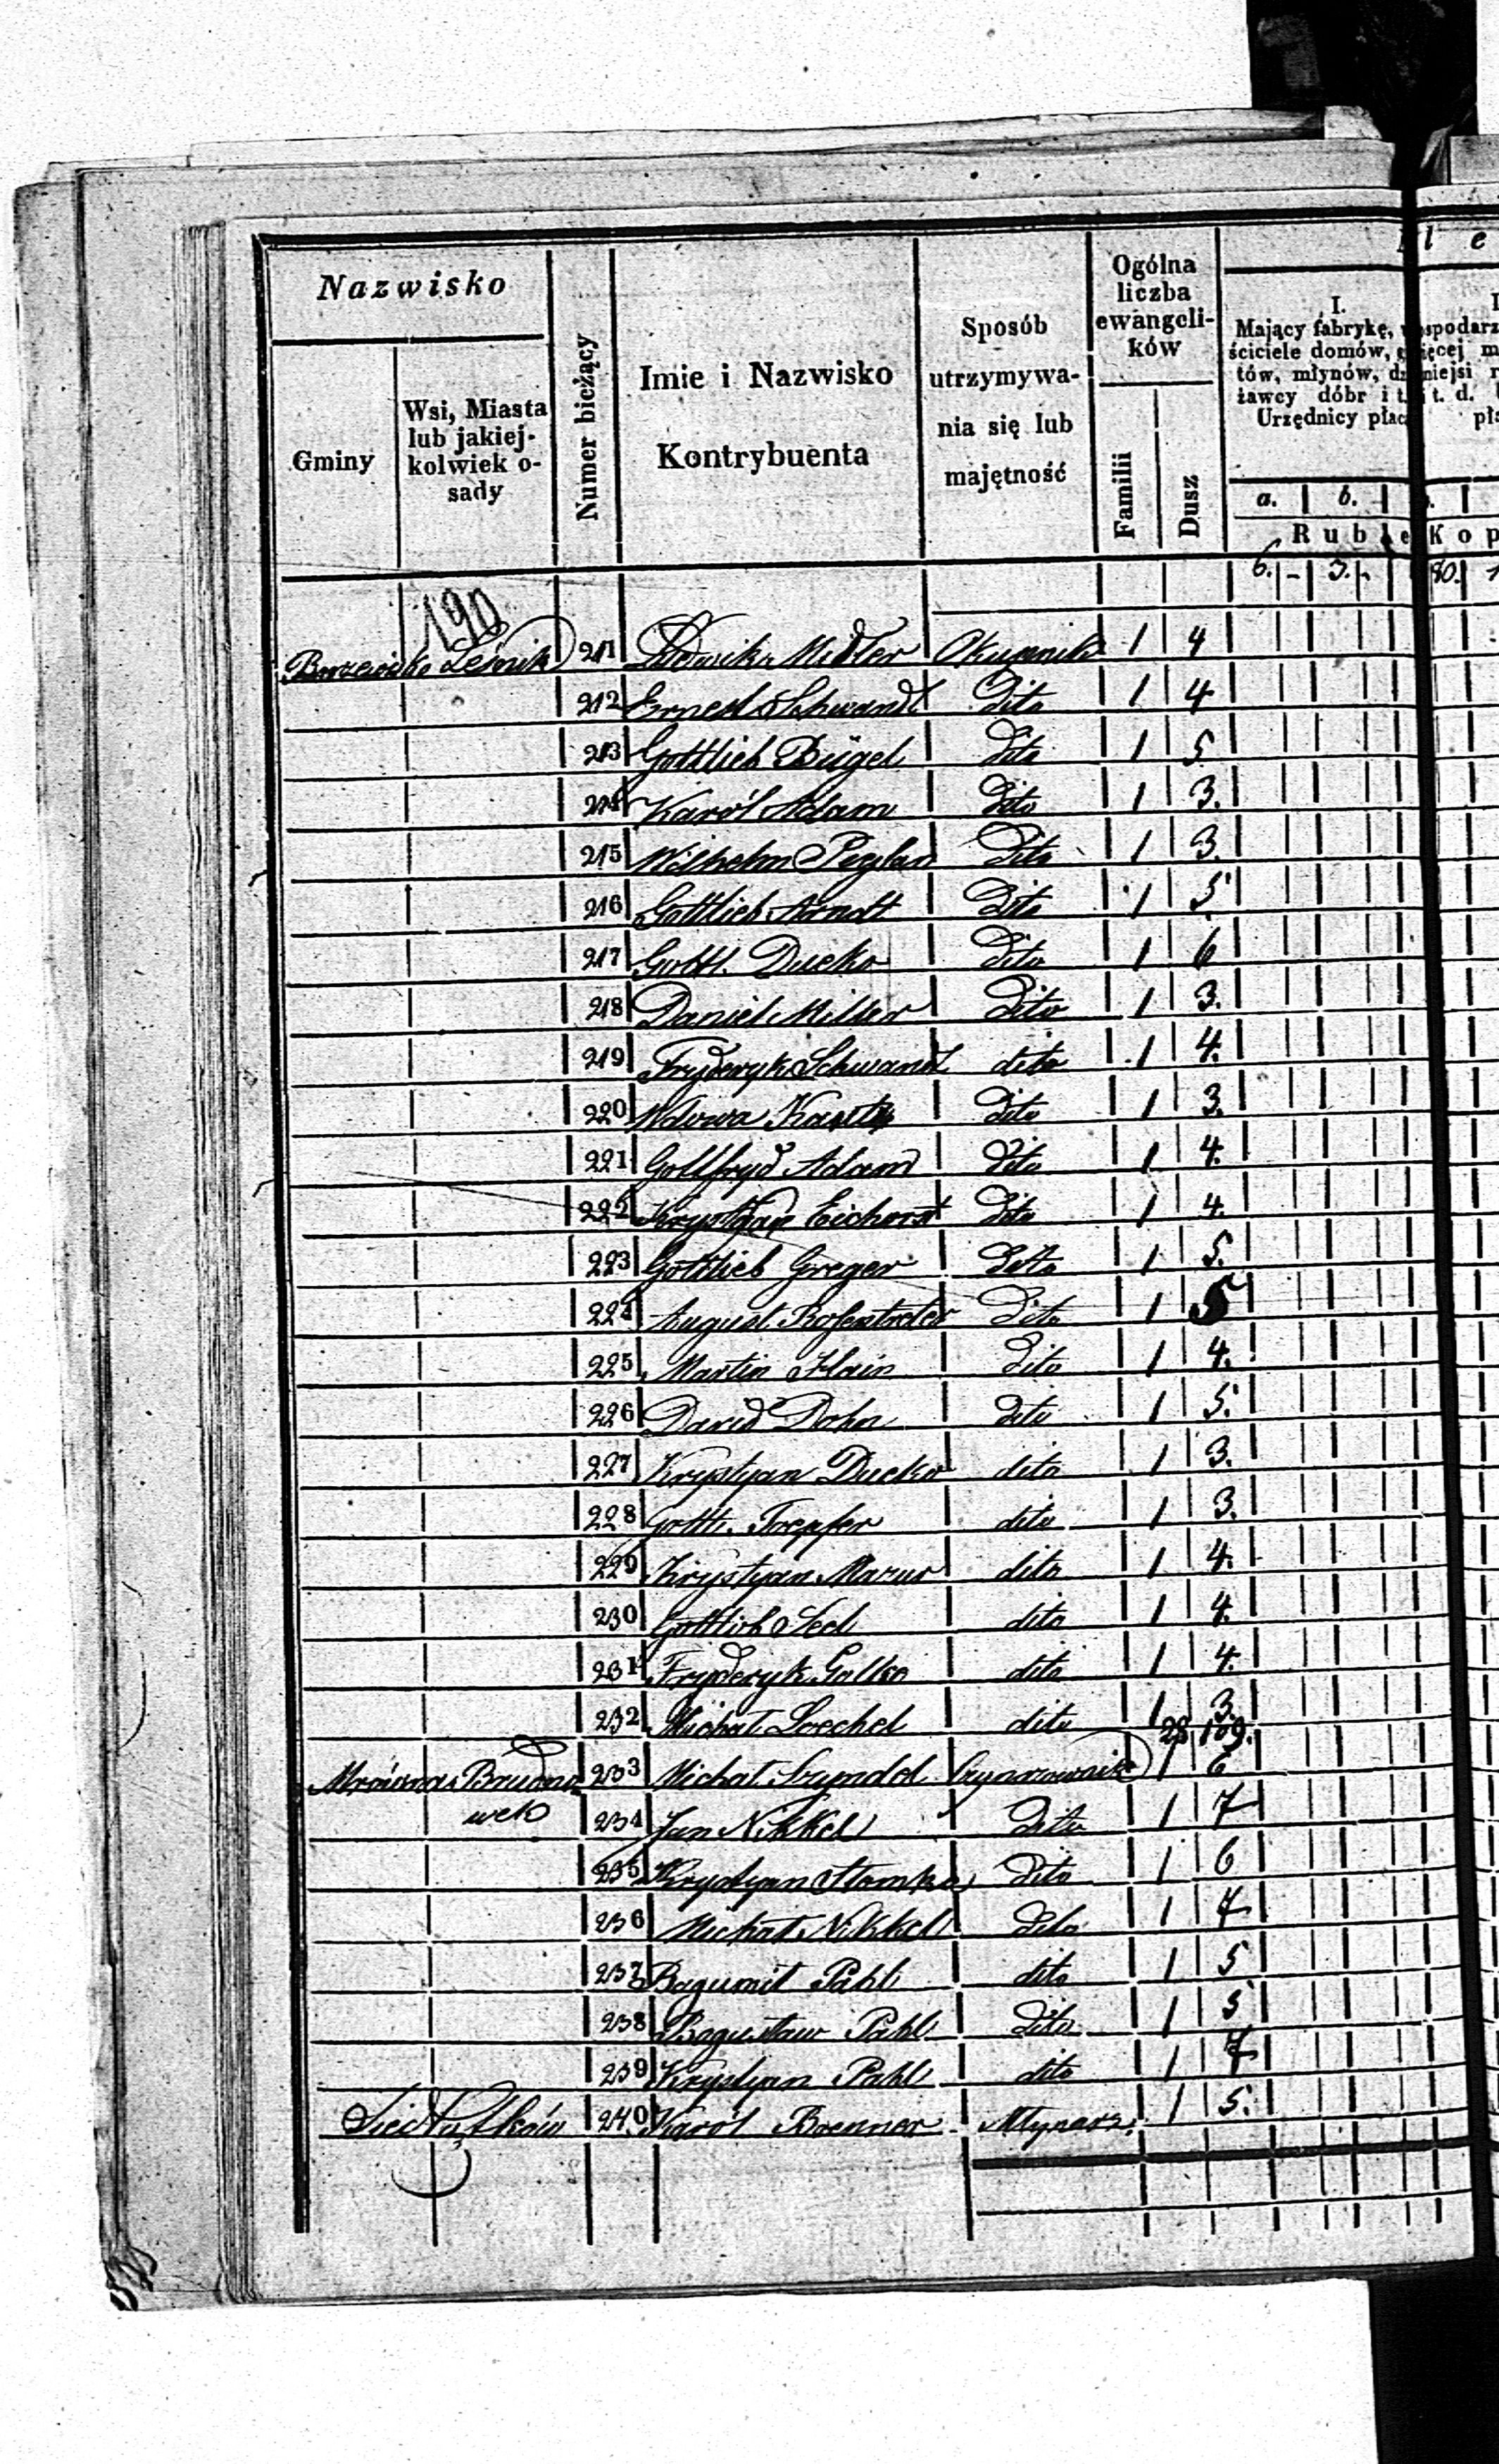 Nazwisko
Gminy
Wsi, Miasta
lub jakiej-
kolwiek o-
sady
Numer bieżący
Imie i Nazwisko
Kontrybuenta
Sposób
utrzymywa-
nia się lub
majętność
Ogólna
liczba
ewangeli-
ków
Familii
Dusz
l e
I.
Mający fabrykę,
ściciele domów,
tów, młynów, dz
żawcy dóbr i t.
Urzędnicy płac
spodarz
ięcej m
niejsi r
i t. d.
pła
a. b.
Ruble Kop
6. - 3. - 80. 1
190
Leśnik 211 Ludwik Midler Okupnik 1 4
212 Ernest Schwandt Dito 1 4
213 Gottlieb Bügel dito 1 5
214 Karól Adam Dito 1 3.
215 Wilhelm Pezlan Dito 1 3.
216 Gottlieb Arndt Dito 1 5
217 Gottl. Ducko Dito 1 6
218 Daniel Miller Dito 1 3.
219 Fryderyk Schwandt dito 1 4.
220 Wdowa Dito 1 3.
221 Gottfryd Adam Dito 1 4.
222 Krystyan Eichorst Dito 1 4.
223 Gottlieb Greger Dito 1 5.
224 August Rosentreter Dito 1 5
225 Martin Hain Dito 1 4.
226 David Dohn Dito 1 5.
227 Krystyan Ducko dito 1 3.
228 Gottl. Toepfer dito 1 3.
229 Krystyan Mazur dito 1 4.
230 Gottlieb dito 1 4.
231 Fryderyk Galko dito 1 4.
232 Michał Loechel dito 1 3.
109.
Brudno 233 Michał Szyndel Czynszownik 1 6
wek 234 Jan Nikkel Dito 1 7
235 Krystyan Stomka Dito 1 6
236 Michał Nikkel Dito 1 7
237 Bogumił Pahl dito 1 5
238 Bogusław Pahl Dito 1 5
239 Krystyan Pahl dito 1 7
Siedłątków 240 Karól Brenner Młynarz. 1 5.